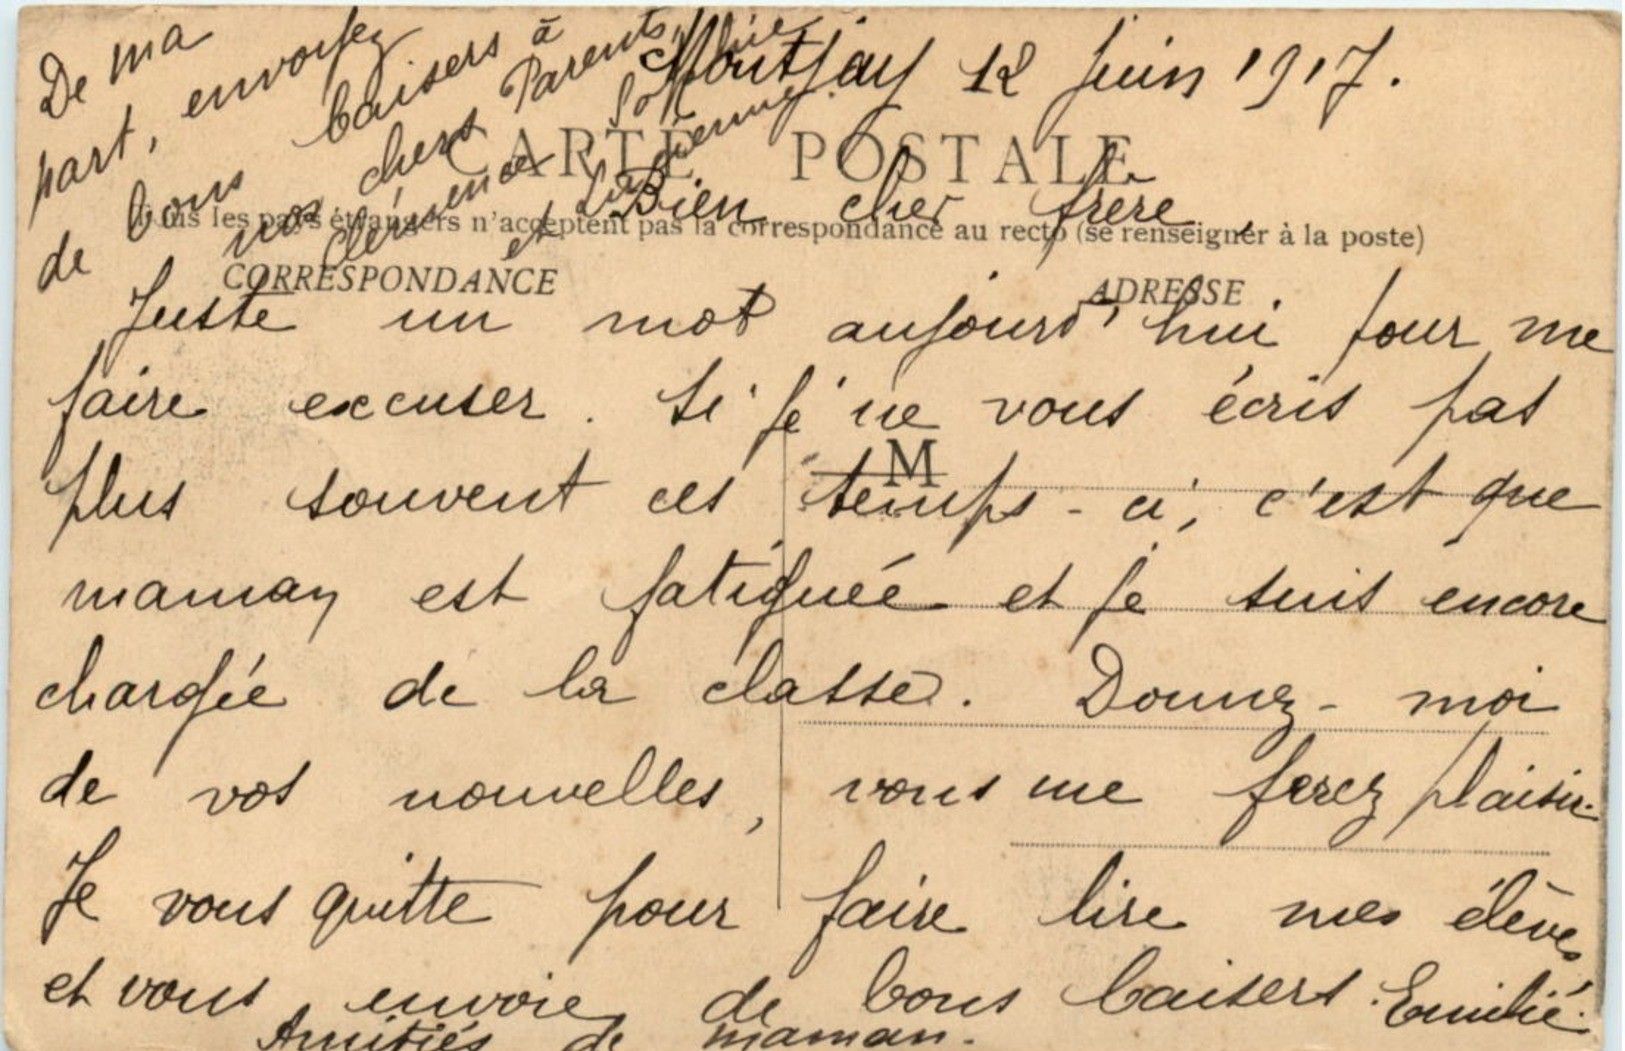 Montjay 12 juin 1917.
CARTE POSTALE
Bien cher frère
Tous les pays étrangers n'acceptent pas la correspondance au recto (se renseigner à la poste)
CORRESPONDANCE ADRESSE
Juste un mot aujourd'hui pour me
faire excuser. Si je ne vous écris pas
M
plus souvent ces temps-ci, c'est que
maman est fatiguée et je suis encore
chargée de la classe. Donnez-moi
de vos nouvelles, vous me ferez plaisir.
Je vous quitte pour faire lire mes élèves
et vous envoie de bons baisers. Emilie.
Amitiés de maman.
De ma
part, envoyez
de bons baisers à
nos chers Parents,
Clémence, Sophie
et Lucienne.